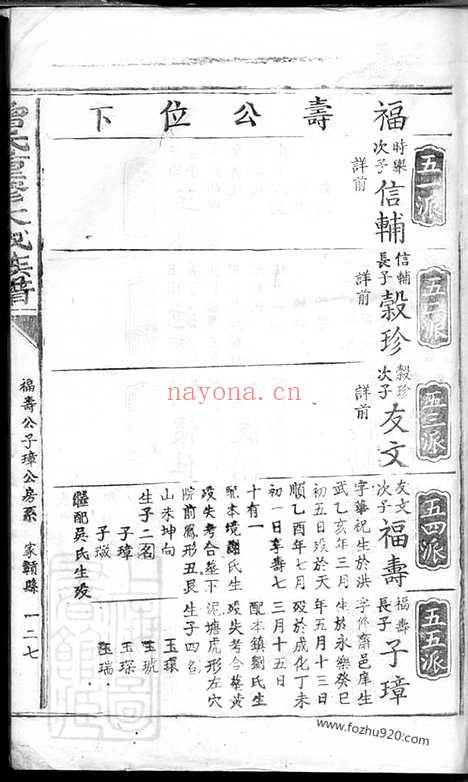 福壽公位下
五一派
時舉次子信輔
詳前
五二派
信輔長子穀珍
詳前
五三派
穀珍次子友文
詳前
五四派
友文次子福壽
字華祝生於洪
武乙亥年三月
初五日歿於天
順乙酉年七月
初一日享壽七
十有一
配本境謝氏生
歿失考合墓下
院前鳳形丑艮
山未坤向
生子二名
子璋
子璥
繼配吳氏生歿
五五派
福壽長子子璋
字修齋邑庠生
生於永樂癸巳
年五月十三日
歿於成化丁未
三月十五日
配本鎮劉氏生
歿失考合墓黃
泥塘虎形左穴
生子四名
玉環
玉琥
玉琛
玉瑞
福壽公子璋公房系
一二七
nayona.cn
www.fozhu920.com